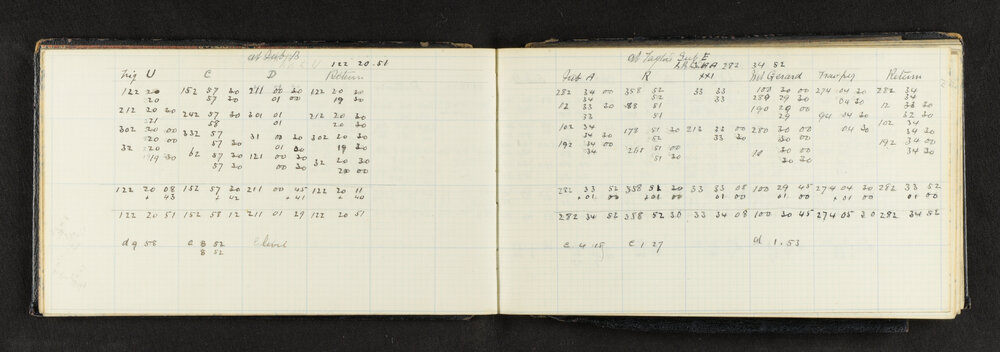 at Sub B
122 20 51
Trig U C D Return
122 20 152 57 30 211 00 30 122 20 20
20 57 30 01 00 19 30
212 20 20 242 57 30 301 01 212 20 30
21 58 01 20 30
302 20 30 332 57 31 01 30 302 20 30
20 00 57 30 01 30 19 30
32 20 62 57 30 121 00 30 32 20 30
19 30 57 30 00 30 20 00
122 20 08 152 57 30 211 00 45 122 20 11
+ 43 + 42 + 41 + 40
122 20 51 152 58 12 211 01 29 122 20 51
d 9 58 c 8 52 Level
8 52
at Sub E
282 34 52
Sub A R XXI Mt Gerard Traw peg Return
282 34 00 358 52 33 33 100 30 00 274 04 30 282 34
34 00 52 33 289 29 30 04 30 34
12 33 30 88 51 190 29 00 94 04 30 12 33 30
33 51 29 32 30
102 34 178 51 30 213 33 00 280 30 00 04 30 102 34
34 30 52 33 30 30 00 34 30
192 34 00 268 51 00 10 30 00 192 34 00
34 51 30 30 30 34 30
282 33 52 358 51 30 33 33 08 100 29 45 274 04 30 282 33 52
+ 01 00 + 01 00 01 00 01 00 + 01 00 01 00
282 34 52 358 52 30 33 34 08 100 30 45 274 05 30 282 34 52
c 4 15 c 1 27 d 1.53